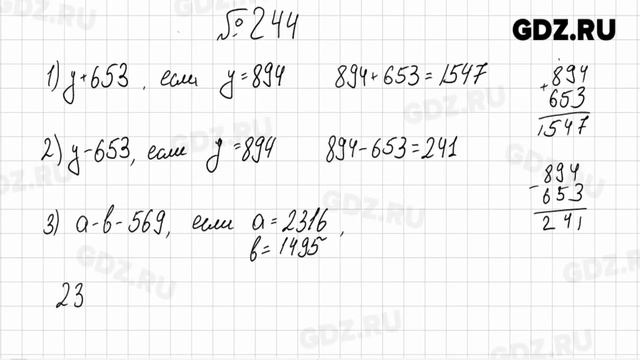 № 244
GDZ.RU
1) y+653, если y=894 894+653=1547
894
+
653
1547
2) y-653, если y=894 894-653=241
894
-
653
241
3) a-b-569, если a=2316,
b=1495
23
GDZ.RU
GDZ.RU
GDZ.RU
GDZ.RU
GDZ.RU
GDZ.RU